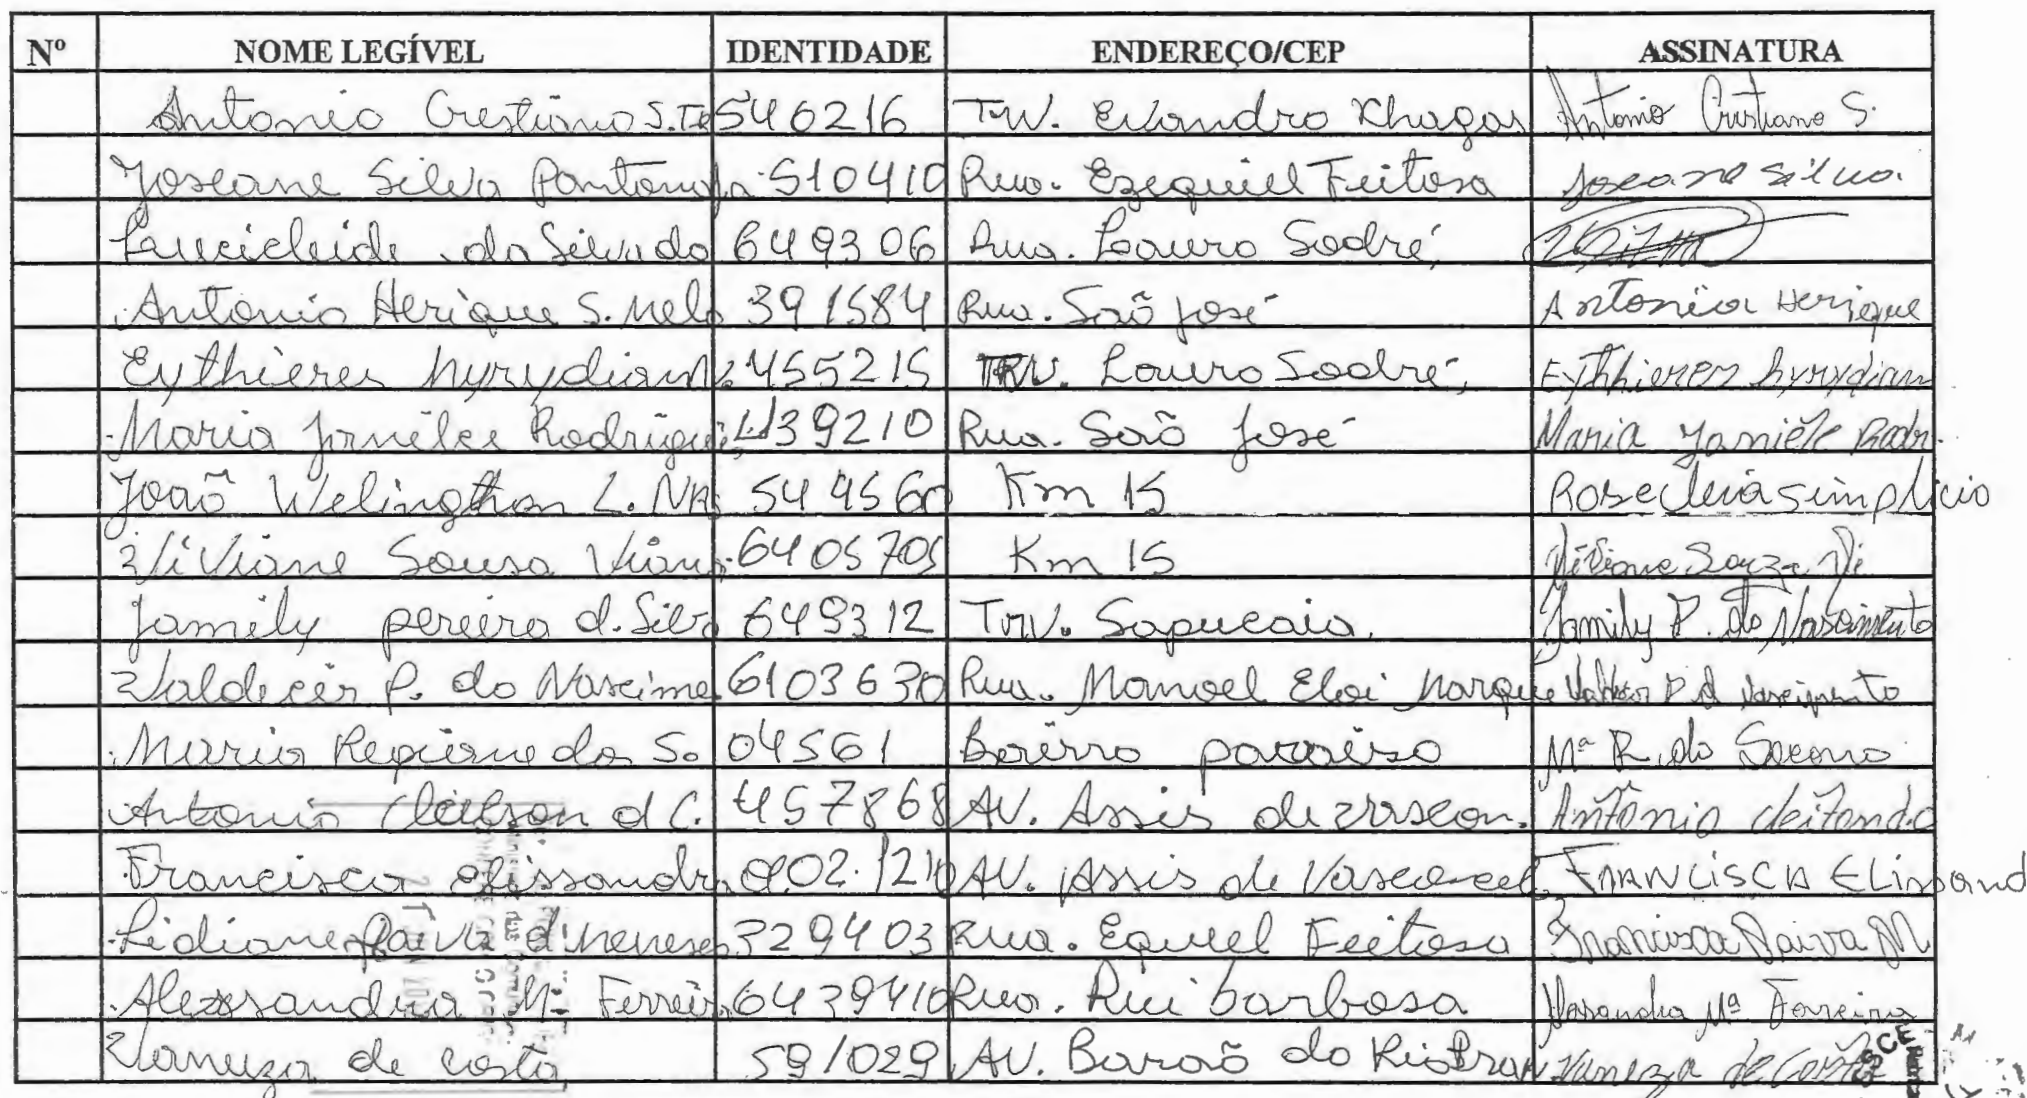 Nº NOME LEGÍVEL IDENTIDADE ENDEREÇO/CEP ASSINATURA
Antonio Crestiano S. Te 546216 Trv. Evandro Khagas Antonio Cristiano S.
Joseane Silva Pantoja 510410 Rua. Ezequiel Feitosa Joseane Silva.
Lucicleide da Silva do 649306 Rua. Lauro Sodré,
Antonio Herique S. Melo 391584 Rua. São José Antonio Herique
Eythieres hyrydian 455215 TRV. Lauro Sodré, Eythieres hyrydian
Maria Rodrigues 439210 Rua. São José Maria Jamiele Rodr.
João Welingthon L. 544560 Km 15 Rosecleia simplicio
Viviane Sousa Viana 6405705 Km 15 Viviane Souza Vi
Jamily pereira d. Silva 649312 Trv. Sapucaia. Jamily P. do Nascimento
Valdecir P. do Nascime 6103630 Rua. Manoel Eloi Marque P. d Nascimento
Maria Regiane do So 04561 Bairro paraiso Mª R. do Socorro
Antonio Cleilson d C. 457868 AV. Assis de Antônio
Francisca Elissandr 902.1210 AV. Assis de FRANCISCA ELissand
Lidiane Paiva d' meneses 329403 Rua. Equiel Feitosa Francisca Paiva M
Alessandra Mª Ferreir 6439410 Rua. Rui barbosa Mª Ferreira
Vanuza de costa 591029 AV. Barão do Rio Bran Vaneza de Costa